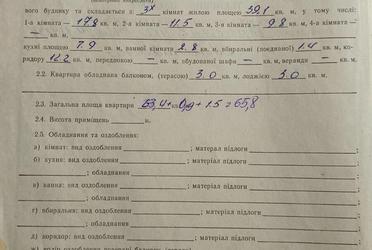 вого будинку та складається з 3х кімнат жилою площею 39,1 кв. м, у тому числі:
1-а кімната — 17,8 кв. м, 2-а кімната — 11,5 кв. м, 3-я кімната — 9,8 кв. м, 4-а кімната —
— кв. м,
кухні площею 7,9 кв. м, ванної кімнати 2,8 кв. м, вбиральні (поєднаної) 1,4 кв. м, ко-
ридору 12,2 кв. м, передпокою — кв. м, вбудованої шафи — кв. м, веранди — кв. м.
2.2. Квартира обладнана балконом, (терасою) 3.0 кв. м, лоджією 3.0 кв. м.
2.3. Загальна площа квартири 63,4 + 0,9 + 1.5 = 65,8
2.4. Висота приміщень м.
2.5. Обладнання та оздоблення:
а) кімнат: вид оздоблення ; матерал підлоги ;
б) кухня: вид оздоблення ; матеріал підлоги
; обладнання ;
в) ванна: вид оздоблення ; матеріал підлоги
; обладнання ;
г) вбиральня: вид оздоблення ; матеріал підлоги
; обладнання ;
д) коридор: вид оздоблення ; матеріал підлоги ;